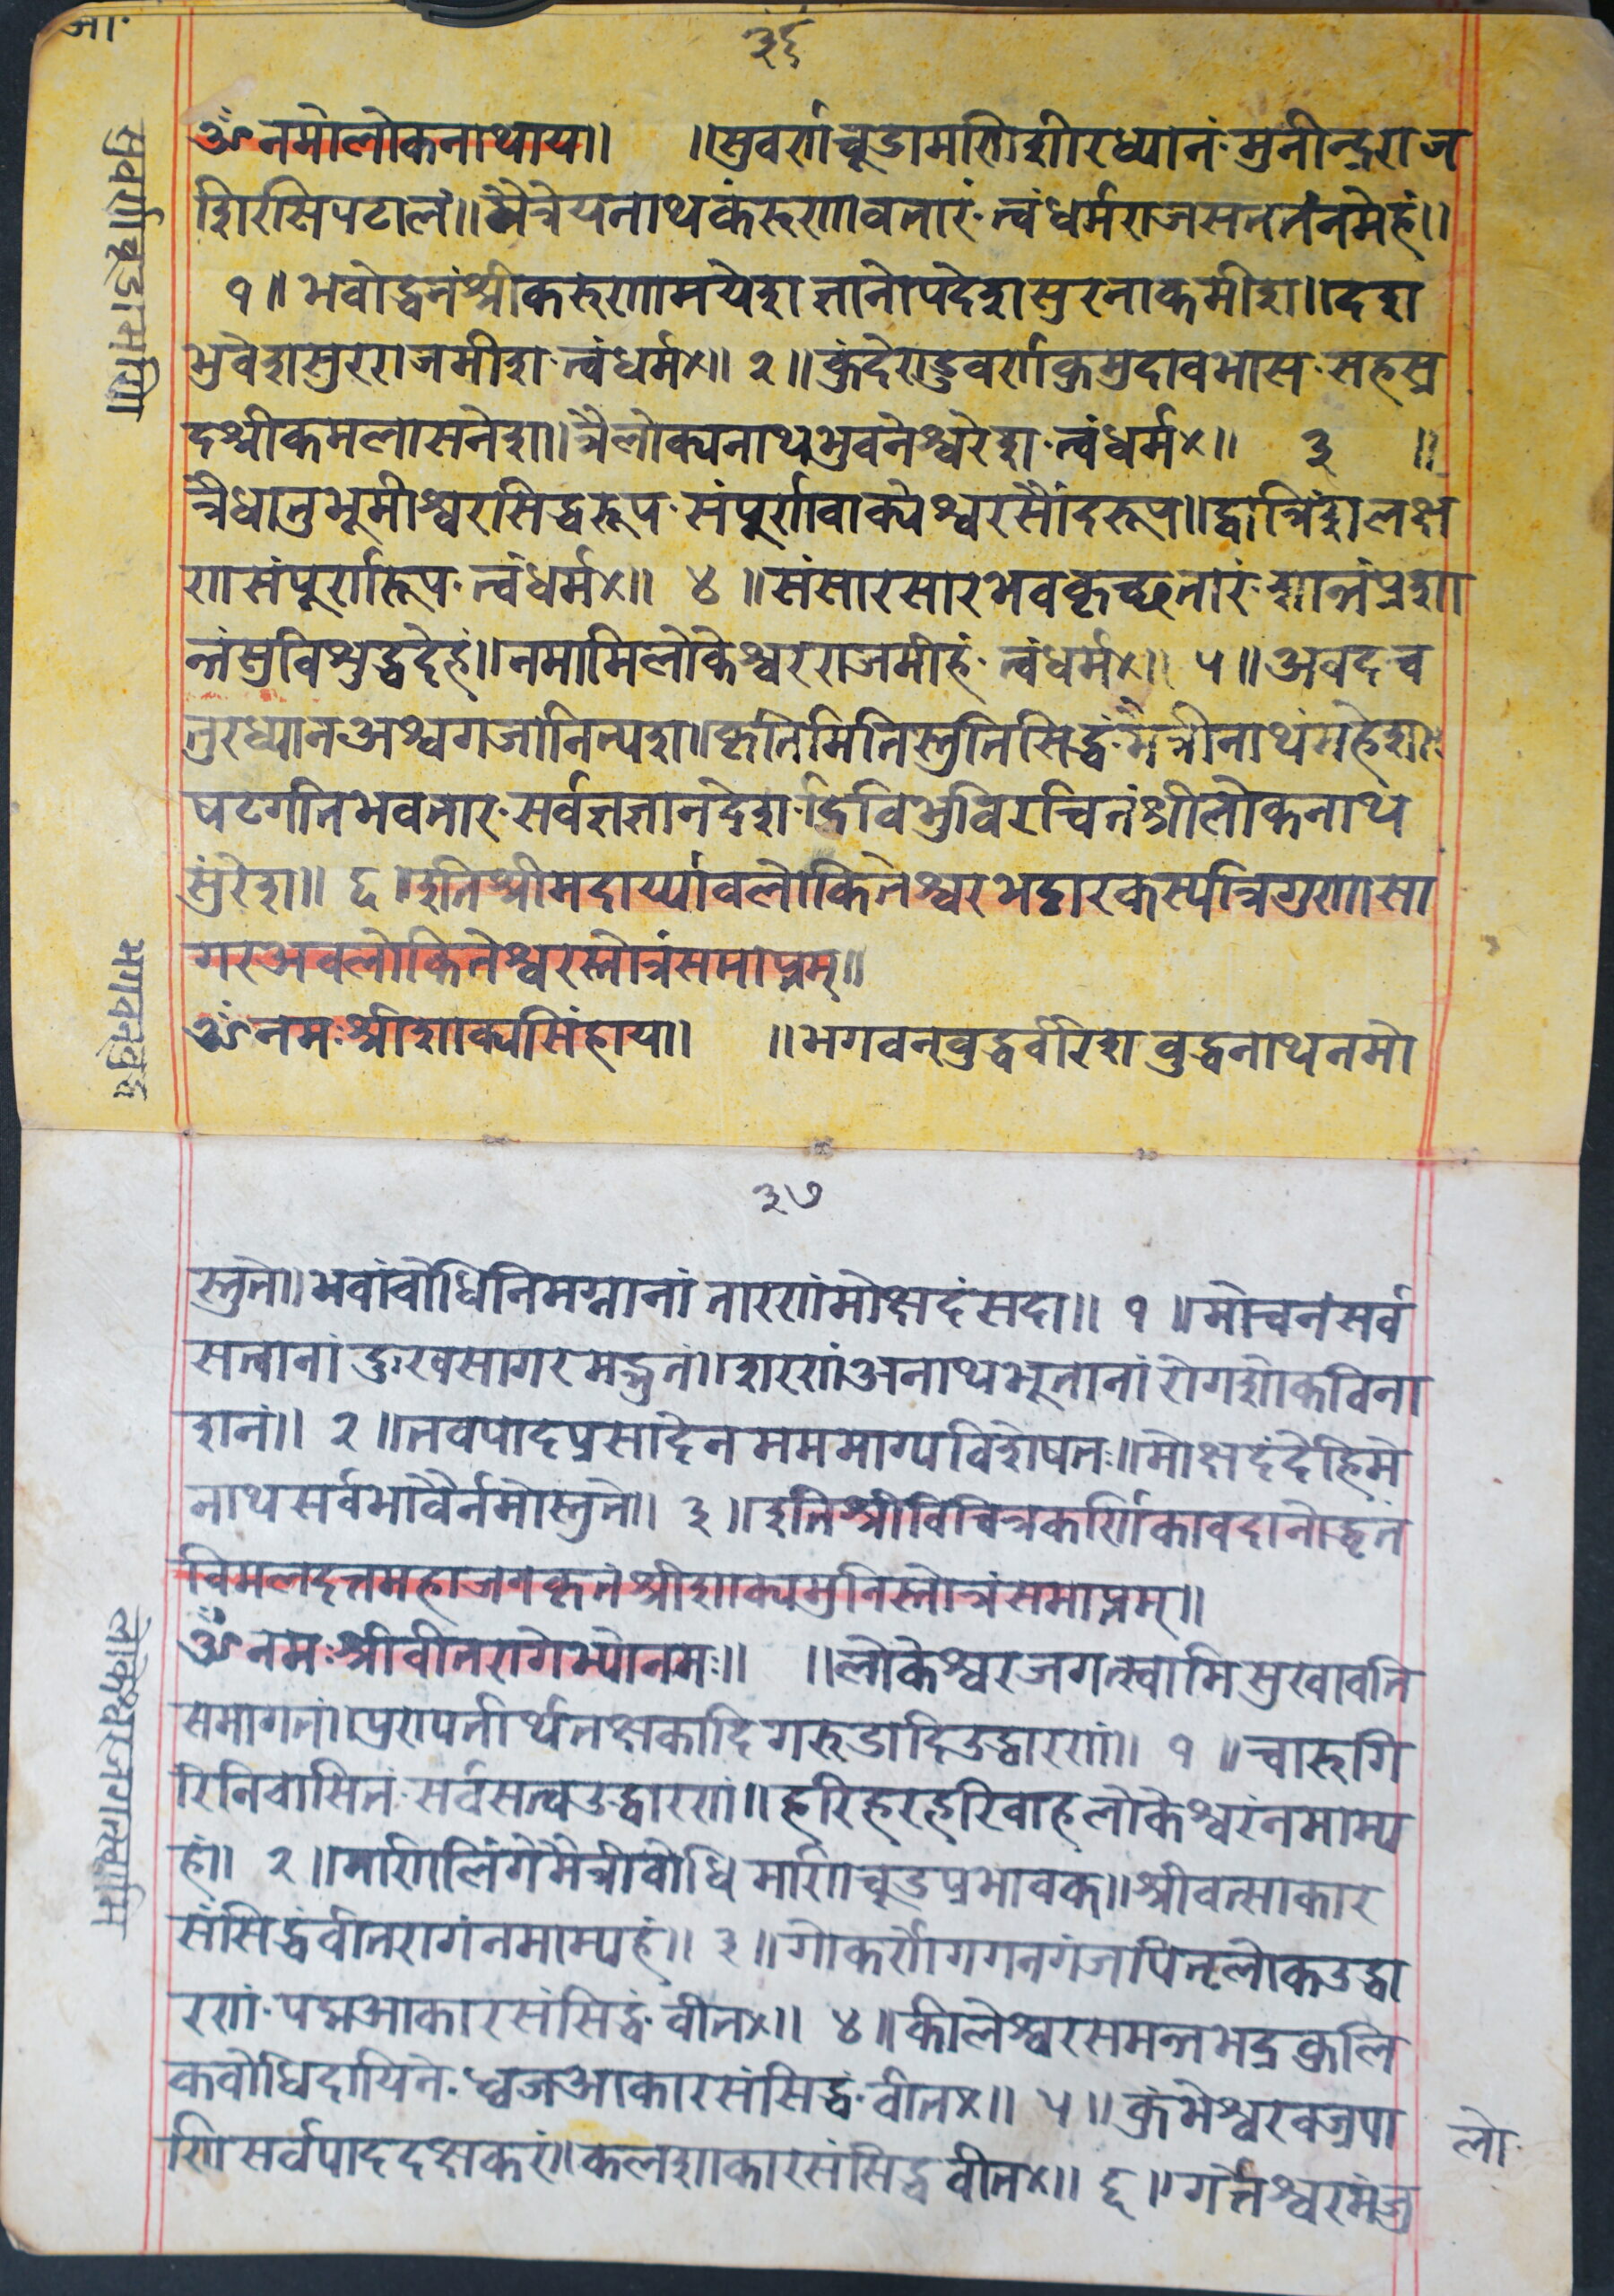 ३६
ॐ नमोलोकनाथाय॥ ॥सुवर्णचूडामणिशीरध्यानं॰मुनीन्द्रराज
शिरसिपटालं॥मैत्रेयनाथकंरुणावतारं॰त्वंधर्मराजसततंनमेहं॥
१॥भवोद्धनंश्रीकरुणामयेश ज्ञानोपदेशसुरनाकमीश॥दश
भुवेशसुरराजमीश॰त्वंधर्म×॥ २॥कुंदेराडुवर्णकुमुदावभास॰सहस्र
दश्रीकमलासनेश॥त्रैलोक्यनाथभुवनेश्वरेश॰त्वंधर्म×॥ ३ ॥
त्रैधातुभूमीश्वरसिद्धरूप॰संपूर्णवाक्येश्वरसौंदरूप॥द्वात्रिंशलक्ष
णसंपूर्णरूप॰त्वंधर्म×॥ ४ ॥संसारसारभवकृच्छतारं॰शान्तंप्रशा
न्तंसुविशुद्धदेहं॥नमामिलोकेश्वरराजमीहं॰त्वंधर्म×॥ ५॥अवद॰च
तुरध्यानअश्वगजानित्यश॥कृतिमितिस्तुतिसिद्धं॰मैत्रीनाथंमहेश॥
षटगीतभवतार॰सर्वज्ञज्ञानदेश॰दिविभुविरचितंश्रीलोकनाथ
सुंरेश॥ ६॥इतिश्रीमदार्य्यावलोकितेश्वरभट्टारकस्यत्रिगुणसा
गरअवलोकितेश्वरस्तोत्रंसमाप्तम्॥
ॐ नमःश्रीशाक्यसिंहाय॥ ॥भगवन्बुद्धर्वारेश बुद्धनाथनमो
सुवर्णचूडामणि
भगवनबुद्ध
३७
स्तुते॥भवांवोधिनिमग्नानां तारणंमोक्षदंसदा॥ १ ॥मोचनंसर्व
सत्वानां दुःखसागरेमद्भुतं॥शरणंअनाथभूतानां रोगशोकविना
शनं॥ २॥तवपादप्रसादेन मममाग्यविशेषतः॥मोक्षदंदेहिमे
नाथसर्वभावैर्नमोस्तुते॥ ३॥इतिश्रीविचित्रकर्णिकावदानोद्धृतं
विमलदत्तमहाजनकृतंश्रीशाक्यमुनिस्तोत्रंसमाप्तम्॥
ॐ नमःश्रीवीतरागेभ्योनमः॥ ॥लोकेश्वरजगत्स्वामिसुखावति
समागतं॥प्रणपर्तार्थतक्षकादिगरुडादिउद्धारणं॥ १ ॥चारुगि
रिनिवासितं॰सर्वसत्वउद्धारणं॥हरिहरहरिवाहलोकेश्वरंनमाम्य
हं॥ २॥मणिलिंगेमैत्रीवोधिमणिचूडप्रभावकं॥श्रीवत्साकार
संसिद्धंवीतरागंनमाम्यहं॥ ३॥गोकर्णेगगनगंजपितृलोकउद्धा
रणं॰पद्मआकारसंसिद्धं॰वीत×॥ ४॥कीलेश्वरसमन्तभद्रकुलि
कवोधिदायिने॰ध्वजआकारसंसिद्धं॰वीत×॥ ५॥कुंभेश्वरवज्रपा
णिसर्वपाददक्षकरं॥कलशाकारसंसिद्धवीत×॥ ६॥गर्तेश्वरमंजु
लोकेश्वरजगत्स्वामि
लो॰